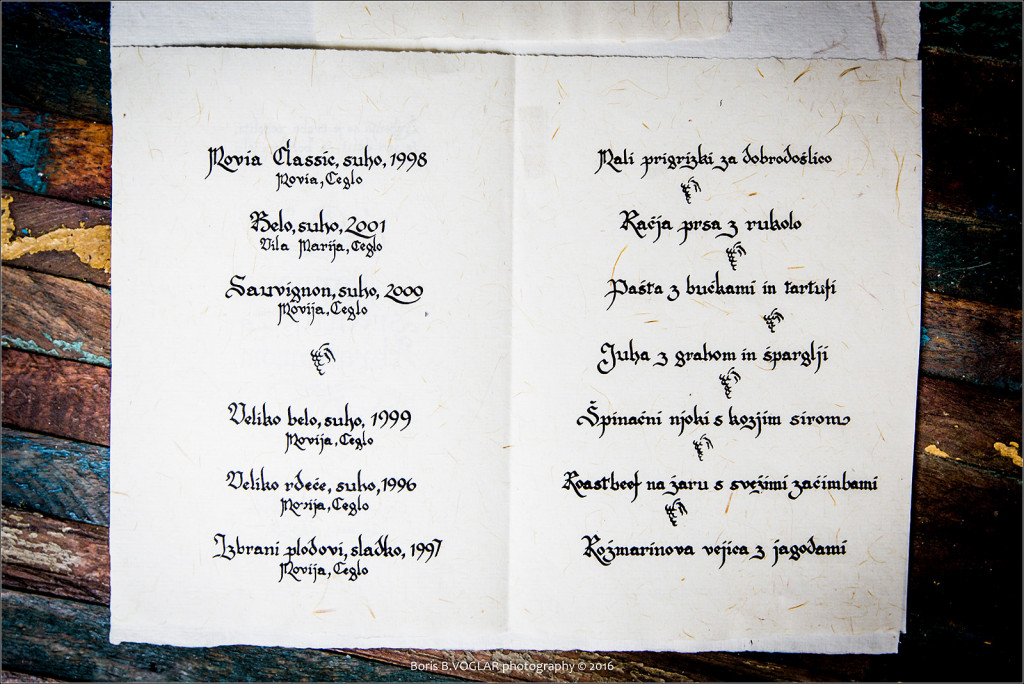 Movia Classic, suho, 1998
Movia, Ceglo
Belo, suho, 2001
Vila Marija, Ceglo
Sauvignon, suho, 2000
Movija, Ceglo
Veliko belo, suho, 1999
Movija, Ceglo
Veliko rdeče, suho, 1996
Movija, Ceglo
Izbrani plodovi, sladko, 1997
Movija, Ceglo
Mali prigrizki za dobrodošlico
Račja prsa z rukolo
Pasta z bučkami in tartufi
Juha z grahom in šparglji
Špinačni njoki s kozjim sirom
Roastbeef na žaru s svežimi začimbami
Rožmarinova vejica z jagodami
Boris B.VOGLAR photography © 2016